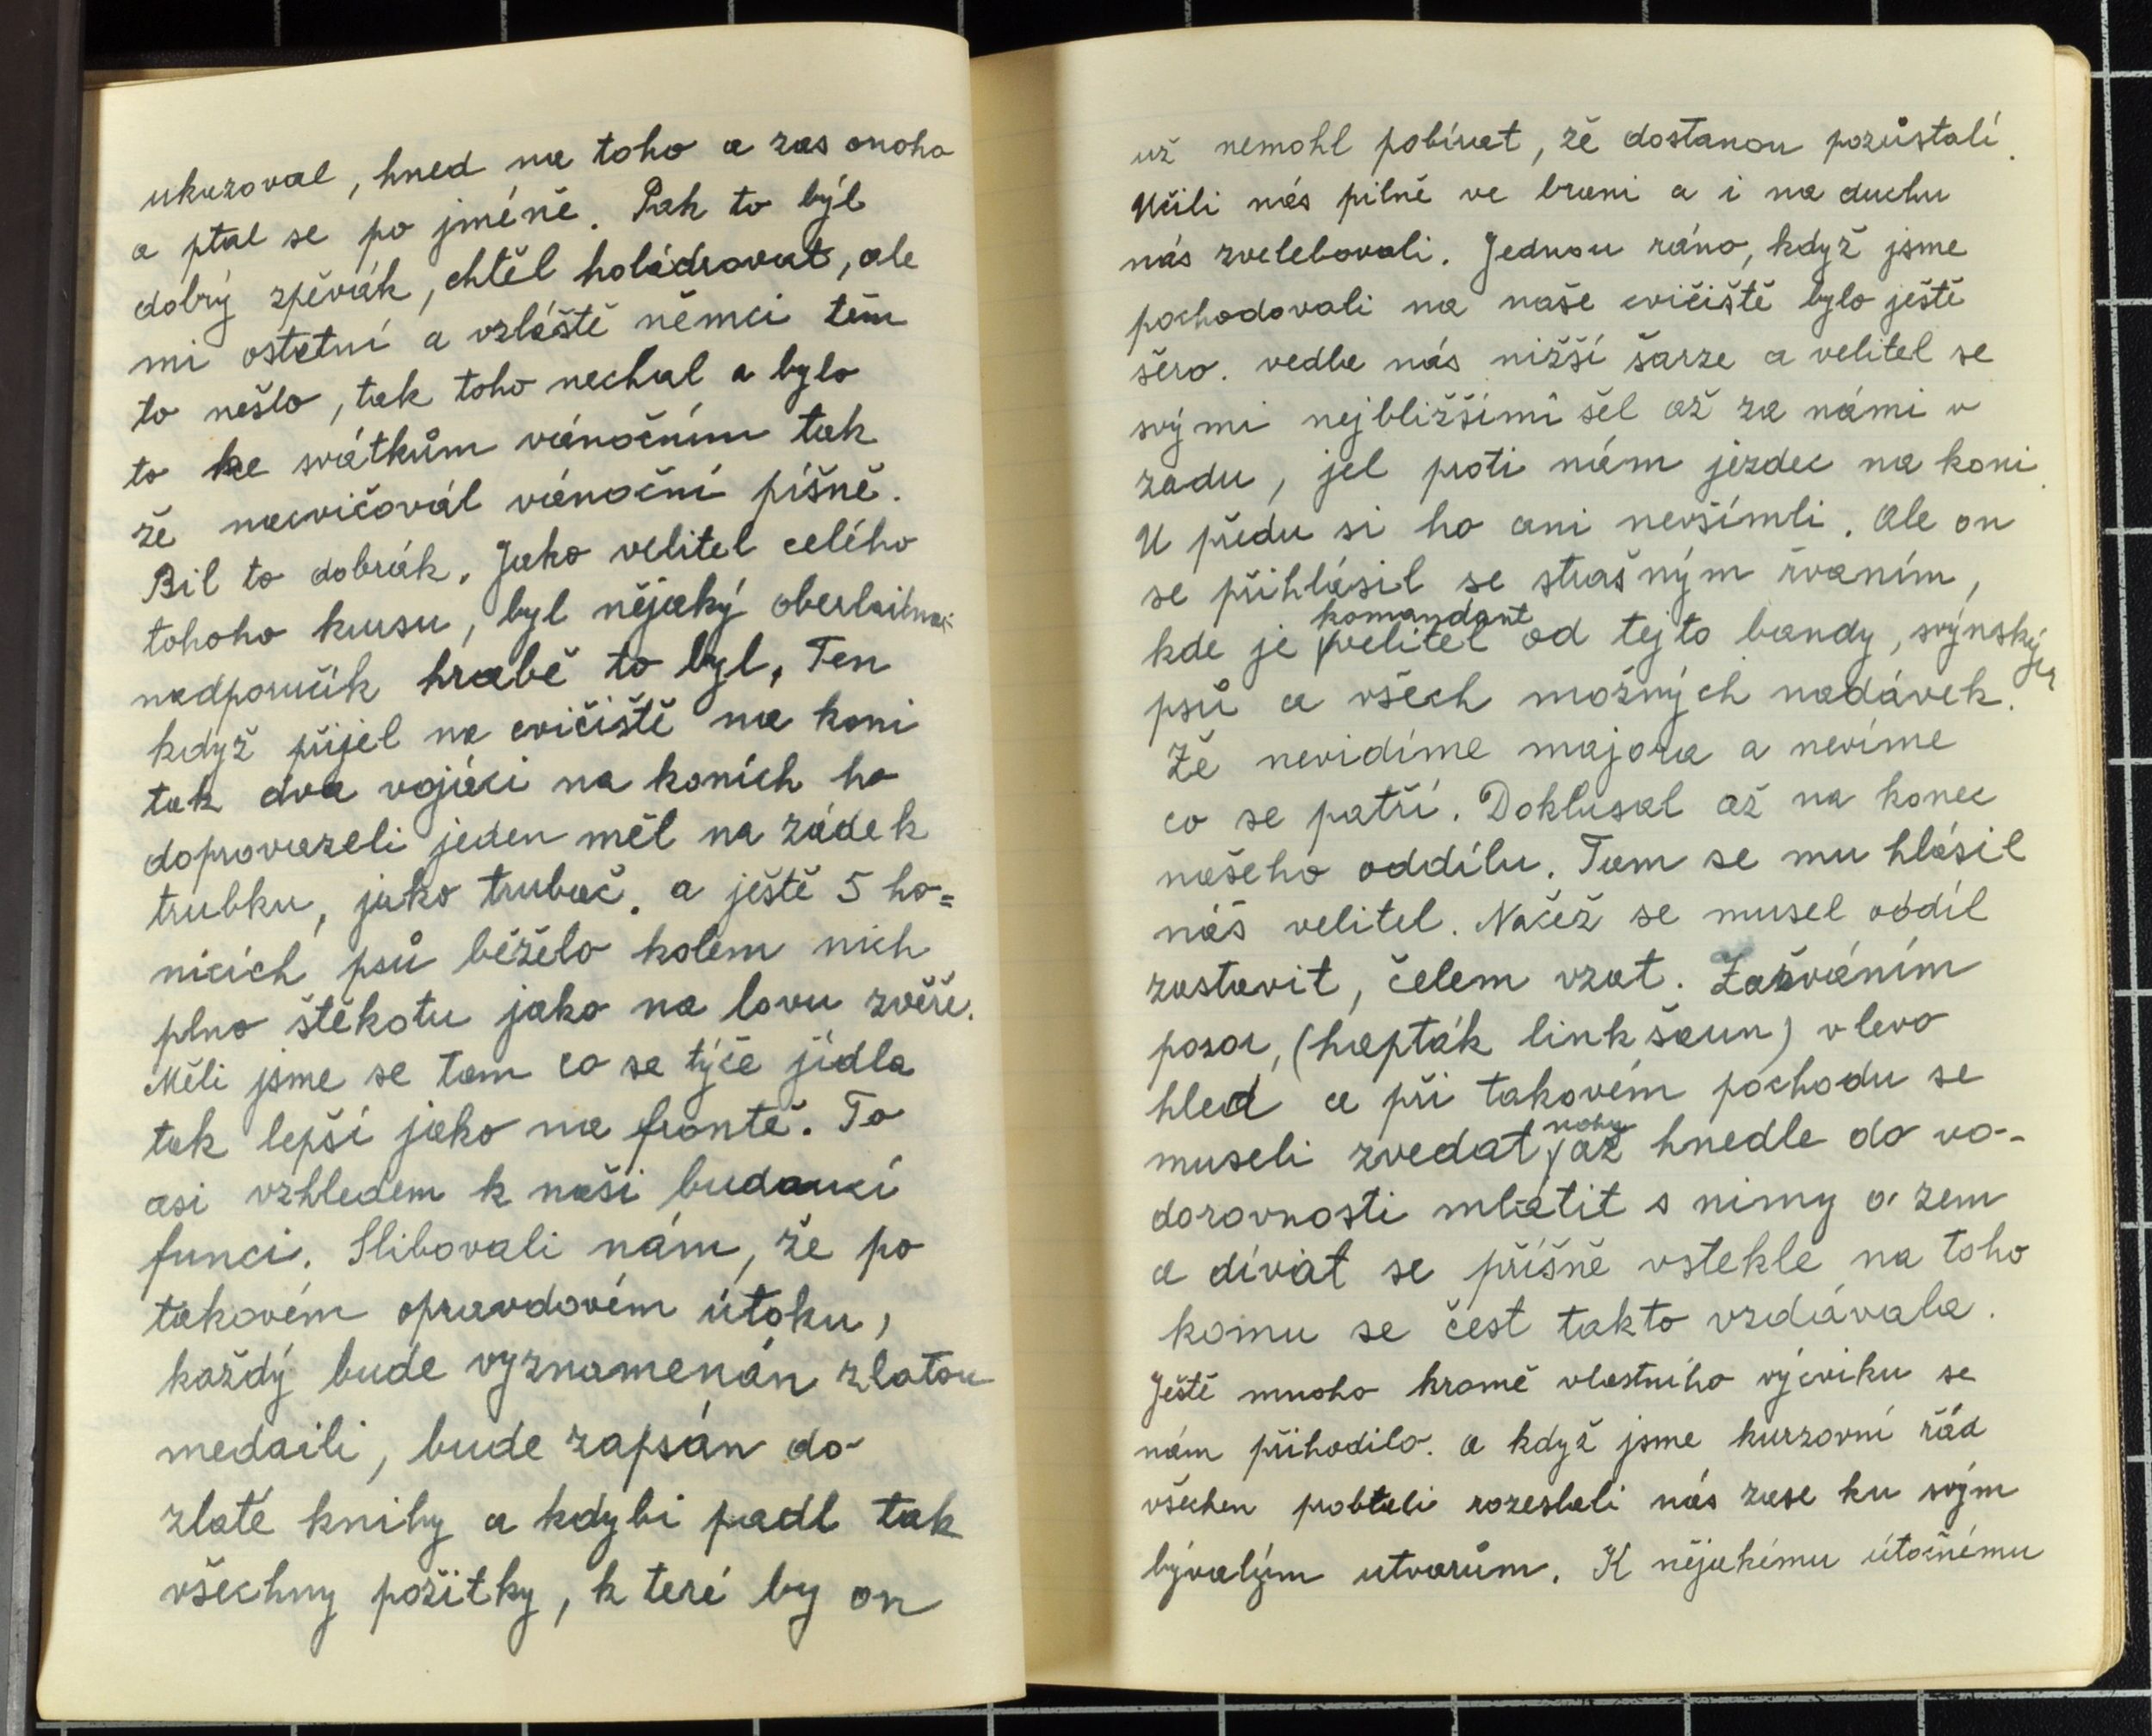 ukazoval, hned na toho a zas onoho
a ptal se po jméně. Pak to býl
dobrý zpěvák, chtěl holádrovat, ale
mi ostatní a vzláště němci těm
to nešlo, tak toho nechal a bylo
to ke svátkům vánočním tak
že nacvičovál vánoční píšně.
Bil to dobrák. Jako velitel celého
tohoho kursu, byl nějaký
nadporučík hrabě to byl. Ten
když přijel na cvičiště na koni
tak dva vojáci na koních ho
doprovazeli jeden měl na zádek
trubku, jako trubač. a ještě 5 ho=
nicích psů běželo kolem nich
plno štěkotu jako na lovu zvěře.
Měli jsme se tam co se týče jídla
tak lepší jako na frontě. To
asi vzhledem k naši budoucí
funci. Slibovali nám, že po
takovém opravdovém útoku,
každý bude vyznamenán zlatou
medaili, bude zapsán do
zlaté knihy a kdybi padl tak
všechny požitky, k teré by on
už nemohl pobívat, žě dostanou pozůstalí.
Učili nás pilně ve brani a i na duchu
nás zvelebovali. Jednou ráno, když jsme
pochodovali na naše cvičiště bylo ještě
šěro. vedle nás nižší šarze a velitel se
svými nejbližšími šel až za námi v
zadu, jel proti nám jezdec na koni.
U předu si ho ani nevšímli. Ale on
se přihlásil se strašným řvaním,
komandant
kde je velitel od tejto bandy, svýnskýjer
psů a všech možných nadávek.
Žě nevidíme majora a nevíme
co se patří. Doklusal až na konec
našeho oddílu. Tam se mu hlásil
náš velitel. Načež se musel oddíl
zastavit, čelem vzat. Zařváním
pozor, (hapták link šaun) vlevo
hled a při takovém pochodu se
nohy
museli zvedat až hnedle do vo-
dorovnosti mlátit s nimy o zem
a dívat se příšně vstekle na toho
komu se čest takto vzdávala.
Ještě mnoho kromě vlastního výcviku se
nám přihodilo. a když jsme kurzovní řád
všechen probrali rozeslali nás zase ku svým
bývalým utvarům. K nějakému útočnému